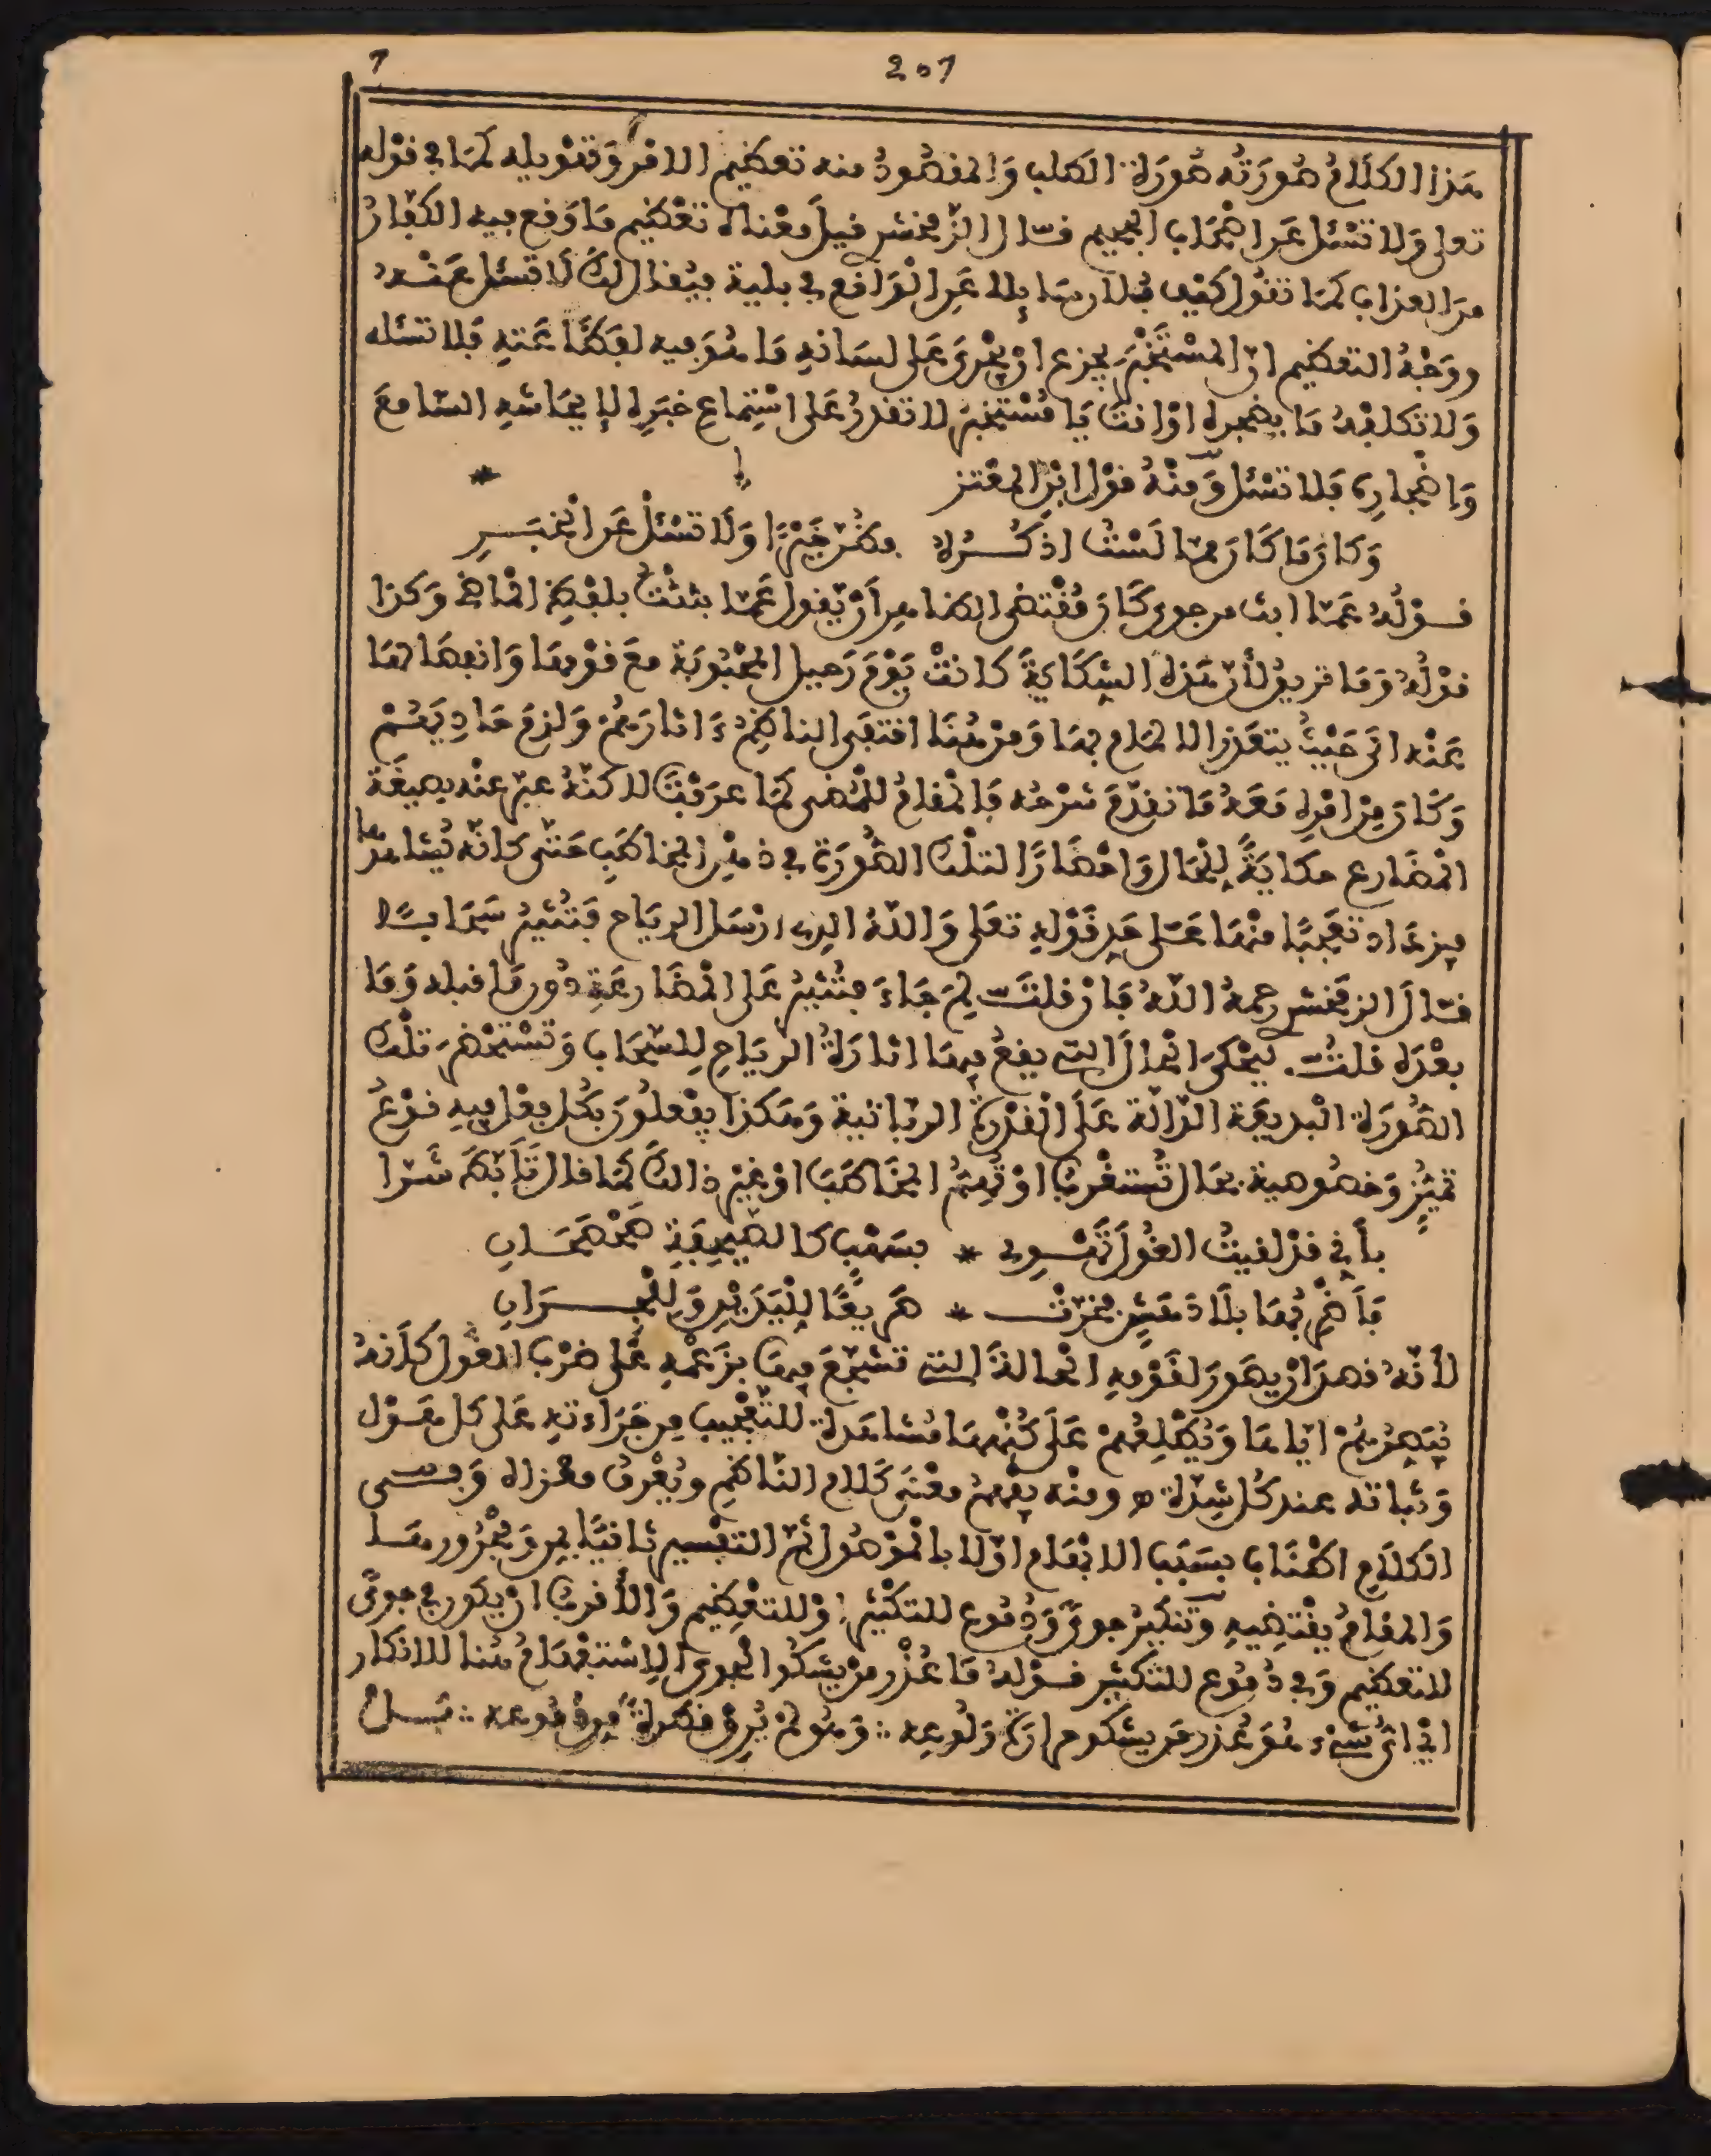 201
هذا الكلام صورته صورة الطلب والمقصود منه تعظيم الامر وتهويله كما في قوله
تعلى ولا تسئل عن اصحاب الجحيم قال الزمخشري قيل معناه تعظيم ما وقع فيه الكفار
من العذاب كما تقول كيف فلان سايلا عن الواقع في بلية فيقال لك لا تسئل عنه
ووجه التعظيم ان المستخبر يجزع ان يجري على لسانه ما هو فيه لفظاعته فلا تسئله
ولا تكلفه ما يضجره او انت يا مستخبر لا تقدر على استماع خبره لايحاشه السامع
واضجاره فلا تسئل ومنه قول ابن المعتز
وكان ما كان مما لست اذكره فظن خيرا ولا تسئل عن الخبر
قوله عما ابث من جوى كان مقتضى الظاهر أن يقول عما بثثت بلفظ الماضي وكذا
قوله وما تريق لأن هذه الشكاية كانت يوم رحيل المحبوبة مع قومها وانفصالها
عنه الى حيث يتعذر الالمام بها ومن هنا اقتفى الناظم ءاثارهم ولزم حاديهم
وكان من امره معه ما تقدم شرحه فالمقام للمضي كما عرفت لاكنه عبر عنه بصيغة
المضارع حكاية للحال واحضارا لتلك الصورة في ذهن المخاطب حتى كانه يشاهدها
فيزداد تعجبا منها على حد قوله تعلى والله الذي ارسل الرياح فتثير سحابا
قال الزمخشري رحمه الله فان قلت لم جاء فتثير على المضارعة دون ما قبله وما
بعده قلت ليحكى الحال التي يقع فيها اثارة الرياح للسحاب وتستحضر تلك
الصورة البديعة الدالة على القدرة الربانية وهكذا يفعلون بكل فعل فيه نوع
تميز وخصوصية بحال تستغرب او تهم المخاطب او غير ذالك كما قال تأبط شرا
بأني قد لقيت الغول تهوي * بسهب كالصحيفة صحصحان
فأضربها بلا دهش فخرت * صريعا لليدين وللجران
لأنه قصد ان يصور لقومه الحالة التي تشجع فيها بزعمه على ضرب الغول كأنه
يبصرهم اياها ويطلعهم على كنهها مشاهدة للتعجيب من جراءته على كل هول
وثباته عند كل شدة ومنه يفهم معنى كلام الناظم ويعرف مغزاه وفي
الكلام اطناب بسبب الابهام اولا بالموصول ثم التفسير ثانيا بمن ومجرورها
والمقام يقتضيه وتنكير جوى ودموع للتكثير او للتعظيم والأقرب ان يكون في جوى
للتعظيم وفي دموع للتكثير قوله ما عذر من يشكوا الجوى الاستفهام هنا للانكار
اي اي شيء هو عذر من يشكو حرارة ولوعه وهو لم يرق قطرة من دموعه